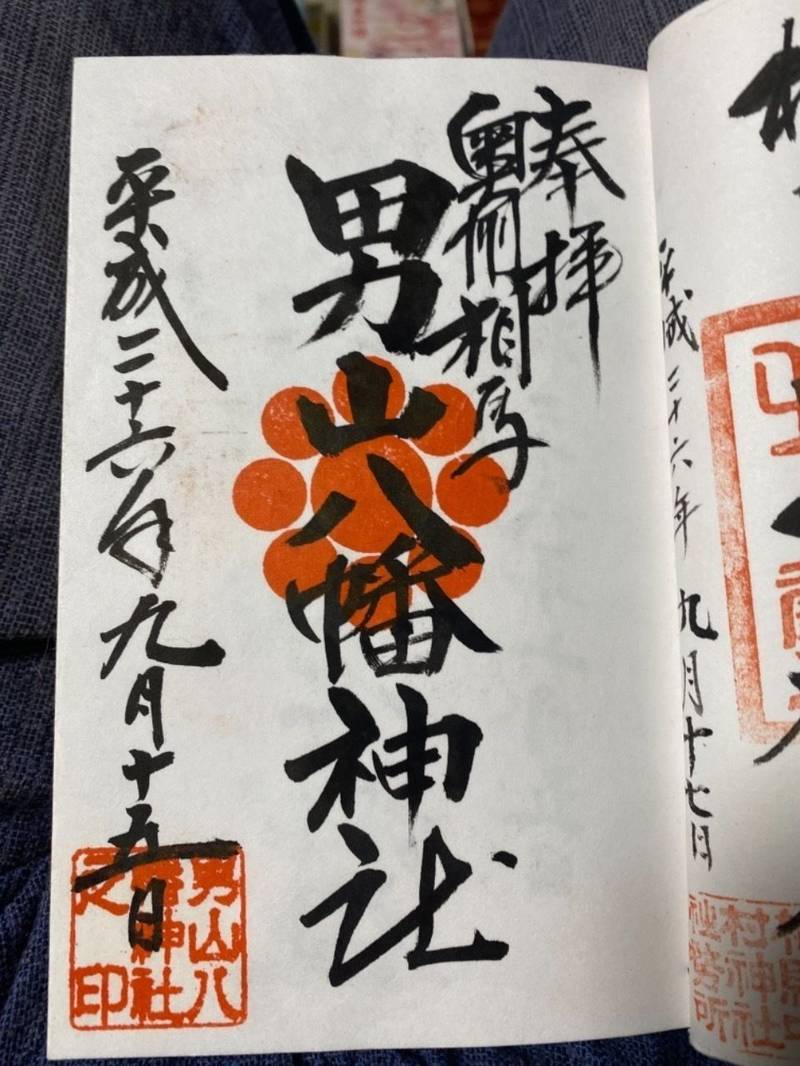 平成二十六年九月十七日
村神社
社務所
奉拝
奥州相馬
男山八幡神社
平成二十六年九月十五日
男山八
幡神社
之印